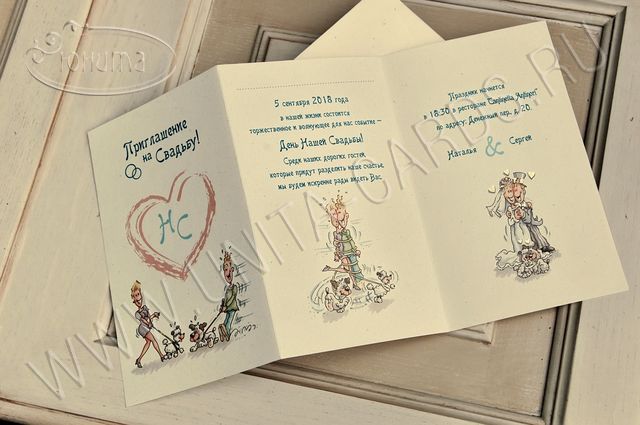 Юнита
Приглашение
на Свадьбу!
НС
5 сентября 2018 года
в нашей жизни состоится
торжественное и волнующее для нас событие –
День Нашей Свадьбы!
Среди наших дорогих гостей,
которые придут разделить наше счастье,
мы будем искренне рады видеть Вас.
Праздник начнется
в 18:30 в ресторане
по адресу: Денежный пер., д. 20.
Наталья & Сергей
WWW.UNITA-CARDS.RU